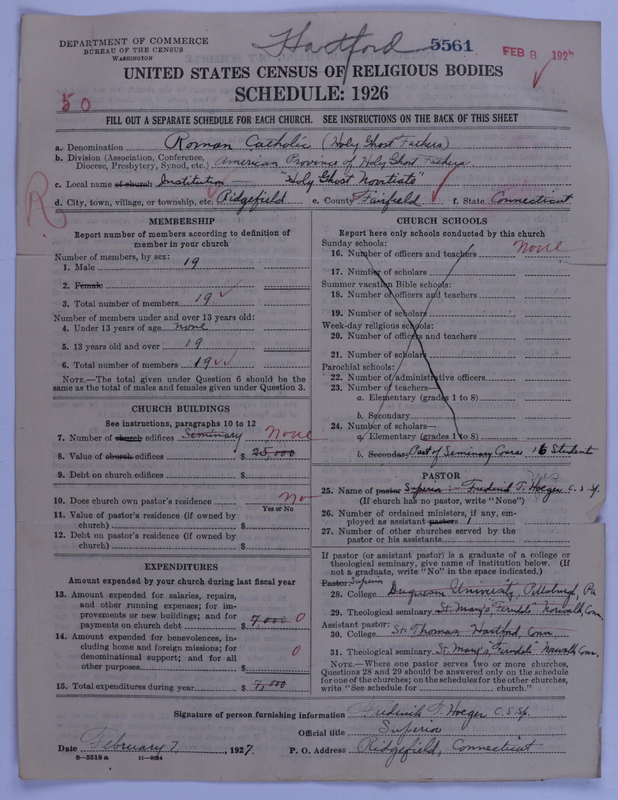 DEPARTMENT OF COMMERCE
BUREAU OF THE CENSUS
WASHINGTON
Hartford
5561
FEB 8 192
UNITED STATES CENSUS OF RELIGIOUS BODIES
SCHEDULE: 1926
50
FILL OUT A SEPARATE SCHEDULE FOR EACH CHURCH. SEE INSTRUCTIONS ON THE BACK OF THIS SHEET
a. Denomination Roman Catholic (Holy Ghost Fathers)
b. Division (Association, Conference, Diocese, Presbytery, Synod, etc.) American Province of Holy Ghost Fathers
c. Local name of church Institution "Holy Ghost Novitiate"
R
d. City, town, village, or township, etc. Ridgefield e. County Fairfield f. State Connecticut
MEMBERSHIP
Report number of members according to definition of member in your church
Number of members, by sex:
1. Male 19
2. Female
3. Total number of members 19
Number of members under and over 13 years old:
4. Under 13 years of age none
5. 13 years old and over 19
6. Total number of members 19
NOTE.—The total given under Question 6 should be the same as the total of males and females given under Question 3.
CHURCH BUILDINGS
See instructions, paragraphs 10 to 12
7. Number of church edifices Seminary None
8. Value of church edifices $ 25,000
9. Debt on church edifices $
10. Does church own pastor's residence No
Yes or No
11. Value of pastor's residence (if owned by church) $
12. Debt on pastor's residence (if owned by church) $
EXPENDITURES
Amount expended by your church during last fiscal year
13. Amount expended for salaries, repairs, and other running expenses; for improvements or new buildings; and for payments on church debt $ 7,000 0
14. Amount expended for benevolences, including home and foreign missions; for denominational support; and for all other purposes $ 0
15. Total expenditures during year $ 7,000
CHURCH SCHOOLS
Report here only schools conducted by this church
Sunday schools:
16. Number of officers and teachers None
17. Number of scholars
Summer vacation Bible schools:
18. Number of officers and teachers
19. Number of scholars
Week-day religious schools:
20. Number of officers and teachers
21. Number of scholars
Parochial schools:
22. Number of administrative officers
23. Number of teachers—
a. Elementary (grades 1 to 8)
b. Secondary
24. Number of scholars—
a. Elementary (grades 1 to 8)
b. Secondary Part of Seminary Course 16 Students
PASTOR
25. Name of pastor Superior:- Frederick T. Hoeger C. S. Sp.
(If church has no pastor, write "None")
26. Number of ordained ministers, if any, employed as assistant pastors 1
27. Number of other churches served by the pastor or his assistants
If pastor (or assistant pastor) is a graduate of a college or theological seminary, give name of institution below. (If not a graduate, write "No" in the space indicated.)
Pastor: Superior
28. College Duquesne University, Pittsburg, Pa
29. Theological seminary St. Mary's Ferndale Norwalk, Conn.
Assistant pastor:
30. College St. Thomas Hartford Conn.
31. Theological seminary St. Mary's "Ferndale" Norwalk Conn.
NOTE.—Where one pastor serves two or more churches, Questions 28 and 29 should be answered only on the schedule for one of the churches; on the schedules for the other churches, write "See schedule for church."
Signature of person furnishing information Frederick T. Hoeger C.S.Sp.
Official title Superior
Date February 7, 1927. P. O. Address Ridgefield, Connecticut
8—5518 a 11—9034